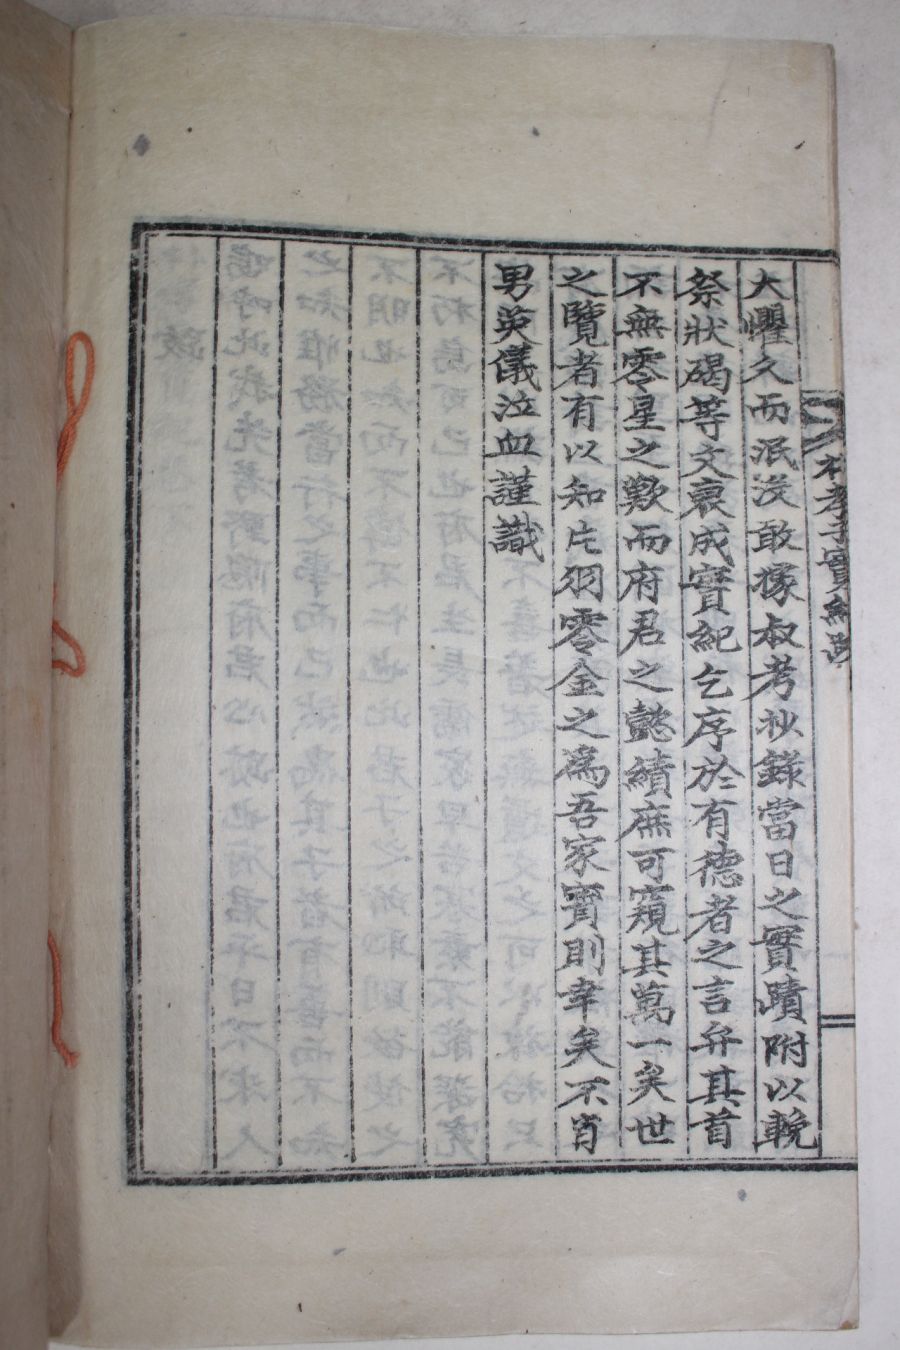 大懼久而泯沒敢據叔考抄錄當日之實蹟附以輓
祭狀碣等文裒成實紀乞序於有德者之言弁其首
不無零星之歎而府君之懿績庶可窺其萬一矣世
之覽者有以知片羽零金之爲吾家寶則幸矣不肖
男英儀泣血謹識
孝子實紀跋